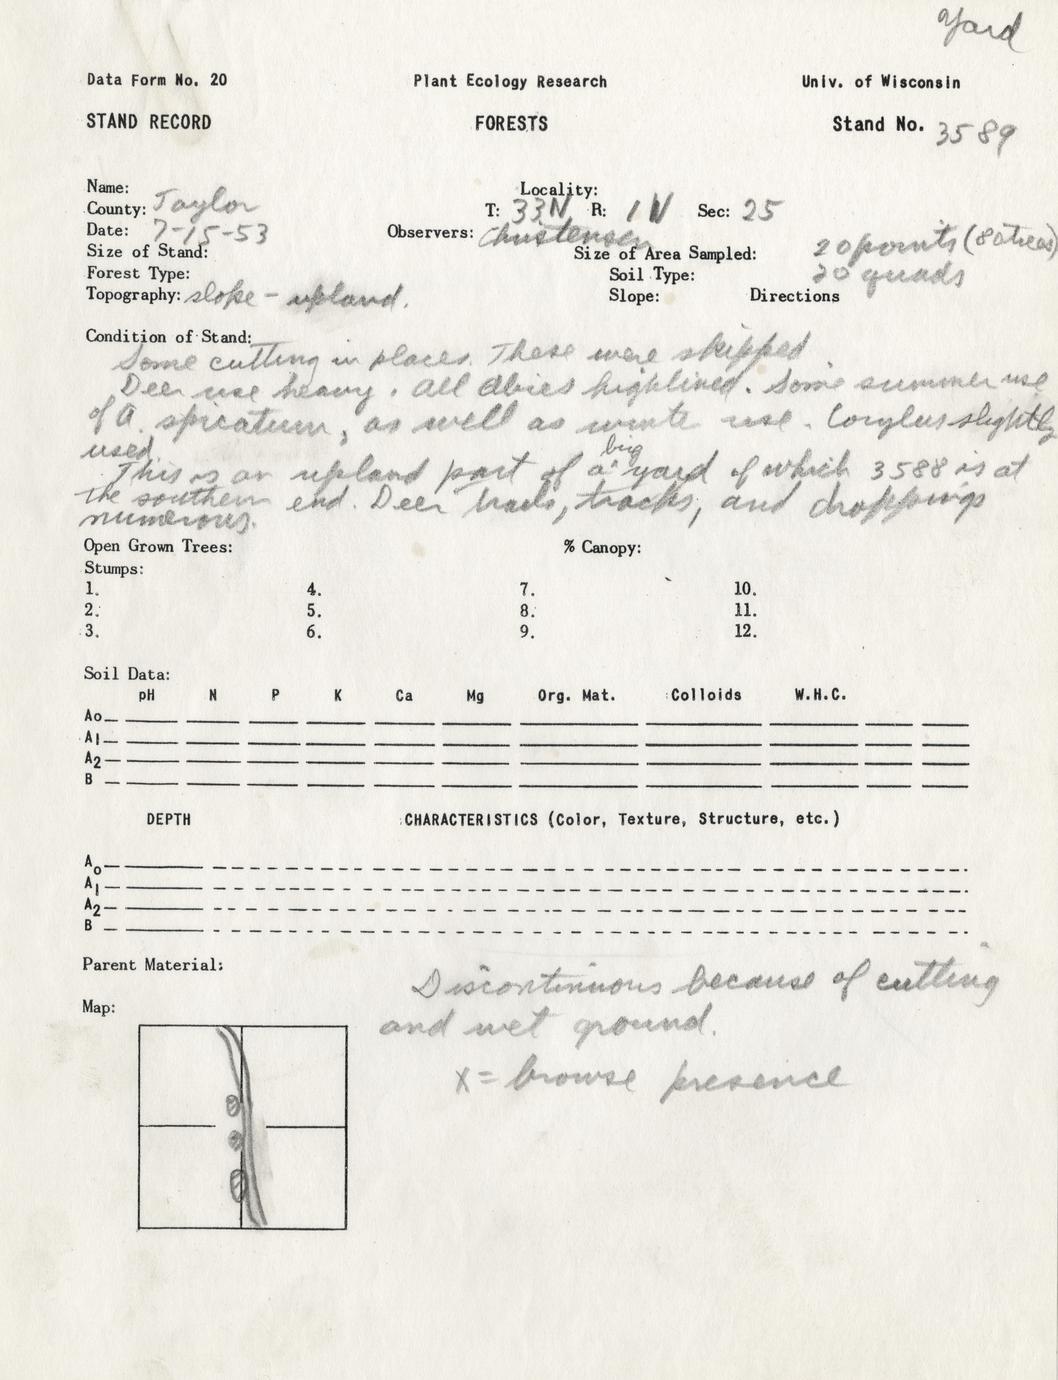 Yard
Data Form No. 20 Plant Ecology Research Univ. of Wisconsin
STAND RECORD FORESTS Stand No. 3589
Name: Locality:
County: Taylor T: 33N R: 1W Sec: 25
Date: 7-15-53 Observers: Christensen
Size of Stand: Size of Area Sampled: 20 points (80 trees)
Forest Type: Soil Type: 20 quads
Topography: slope - upland. Slope: Directions
Condition of Stand:
Some cutting in places. These were skipped.
Deer use heavy. All Abies highlined. Some summer use
of A. spicatum, as well as winte use. Corylus slightly
used.
This is an upland part of a big yard of which 3588 is at
the southern end. Deer trails, tracks, and droppings
numerous.
Open Grown Trees: % Canopy:
Stumps:
1. 4. 7. 10.
2. 5. 8. 11.
3. 6. 9. 12.
Soil Data:
pH N P K Ca Mg Org. Mat. Colloids W.H.C.
Ao
A1
A2
B
DEPTH CHARACTERISTICS (Color, Texture, Structure, etc.)
Ao
A1
A2
B
Parent Material:
Discontinuous because of cutting
Map:
and wet ground.
x = browse presence